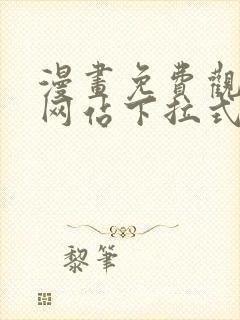 漫畫免費觀
网佔下拉式
黎筆